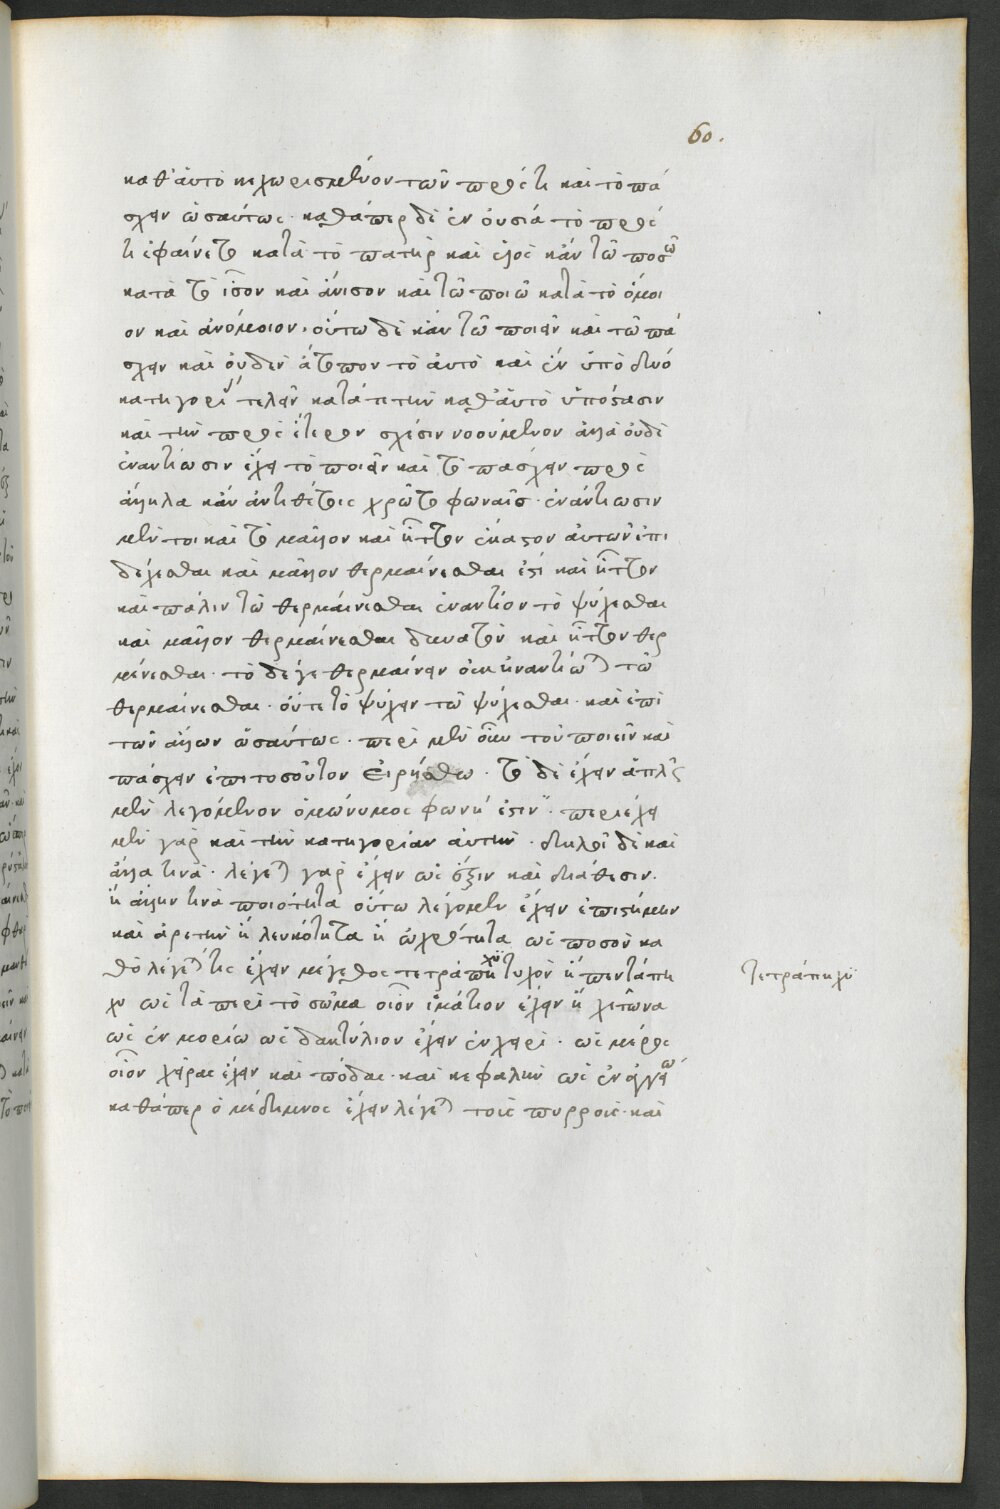 60.
καθ' ἁυτὸ κεχωρισμένον τῶν πρός τι καὶ τὸ πά
σχειν ὡσαύτως. καθάπερ δὲ ἐν ὀυσία τὸ πρός
τι ἐφαίνετο κατὰ τὸ πατὴρ καὶ ὑιὸς κἀν τῶ ποσῶ
κατὰ τὸ ἶσον καὶ ἄνισον καὶ τῶ ποιῶ κατὰ τὸ ὅμοι
ον καὶ ἀνόμοιον, ὅυτω δὲ κἀν τῶ ποιεῖν καὶ τῶ πά
σχειν καὶ ὀυδὲν ἄτοπον τὸ ἀυτὸ καὶ ἓν ὑπὸ δυό
κατηγορί τελεῖν κατά τε τὴν καθ' ἁυτὸ ὑπόστασιν
καὶ τὴν πρὸς ἕτερον σχέσιν νοούμενον ἀλλὰ ὀυδὲ
ἐναντίωσιν ἔχει τὸ ποιεῖν καὶ τὸ πάσχειν πρὸς
ἄλληλα κἂν ἀντιθέτοις χρῶτο φωναῖς. ἐνάντίωσιν
μέν τοι καὶ τὸ μᾶλλον καὶ ἧττον ἕκαστον ἀυτῶν ἐπι
δέχεσθαι καὶ μᾶλλον θερμαίνεσθαι ἐστὶ καὶ ἧττον
καὶ πάλιν τῶ θερμαίνεσθαι ἐναντίον τὸ ψύχεσθαι
καὶ μᾶλλον θερμαίνεσθαι δυνατὸν καὶ ἧττον θερ
μένεσθαι. τὸ δέ γε θερμαίνειν ὀυκ ἠναντίω) τῶ
θερμαίνεσθαι. ὀύτε τὸ ψύχειν τῶ ψύχεσθαι. καὶ ἐπὶ
τῶν ἄλλων ὡσαύτως. περὶ μὲν ὀῦν τοῦ ποιεῖν καὶ
πάσχειν ἐπὶ τοσοῦτον ἐιρήσθω. τὸ δὲ ἔχειν ἁπλῶς
μὲν λεγόμενον ὁμώνυμος φωνή ἐστιν. περιέχει
μὲν γὰρ καὶ τὴν κατηγορίαν ἀυτὴν. δηλοῖ δὲ καὶ
ἄλλα τινά. λέγε) γὰρ ἔχειν ὡς ἕξιν καὶ διάθεσιν.
ἢ ἄλλην τινὰ ποιότητα ὅυτω λέγομεν ἔχειν ἐπιστήμην
καὶ ἀρετὴν ἢ λευκότητα ἢ ὠχρότητα ὡς ποσὸν κα
θὸ λέγε) τις ἔχειν μέγεθος τετράπη χυ τυχὸν ἢ πεντάπη
χυ ὡς τὰ περὶ τὸ σῶμα οἷον ἱμάτιον ἔχειν ἢ χιτῶνα
ὡς ἐν μορίω ὡς δακτύλιον ἔχειν ἐν χειρί. ὡς μέρος
οἷον χεῖρας ἔχειν καὶ πόδας. καὶ κεφαλὴν ὡς ἐν ἀγγείω
καθάπερ ὁ μέδιμνος ἔχειν λέγε) τοὺς πυρροὺς. καὶ
τετράπηχυ